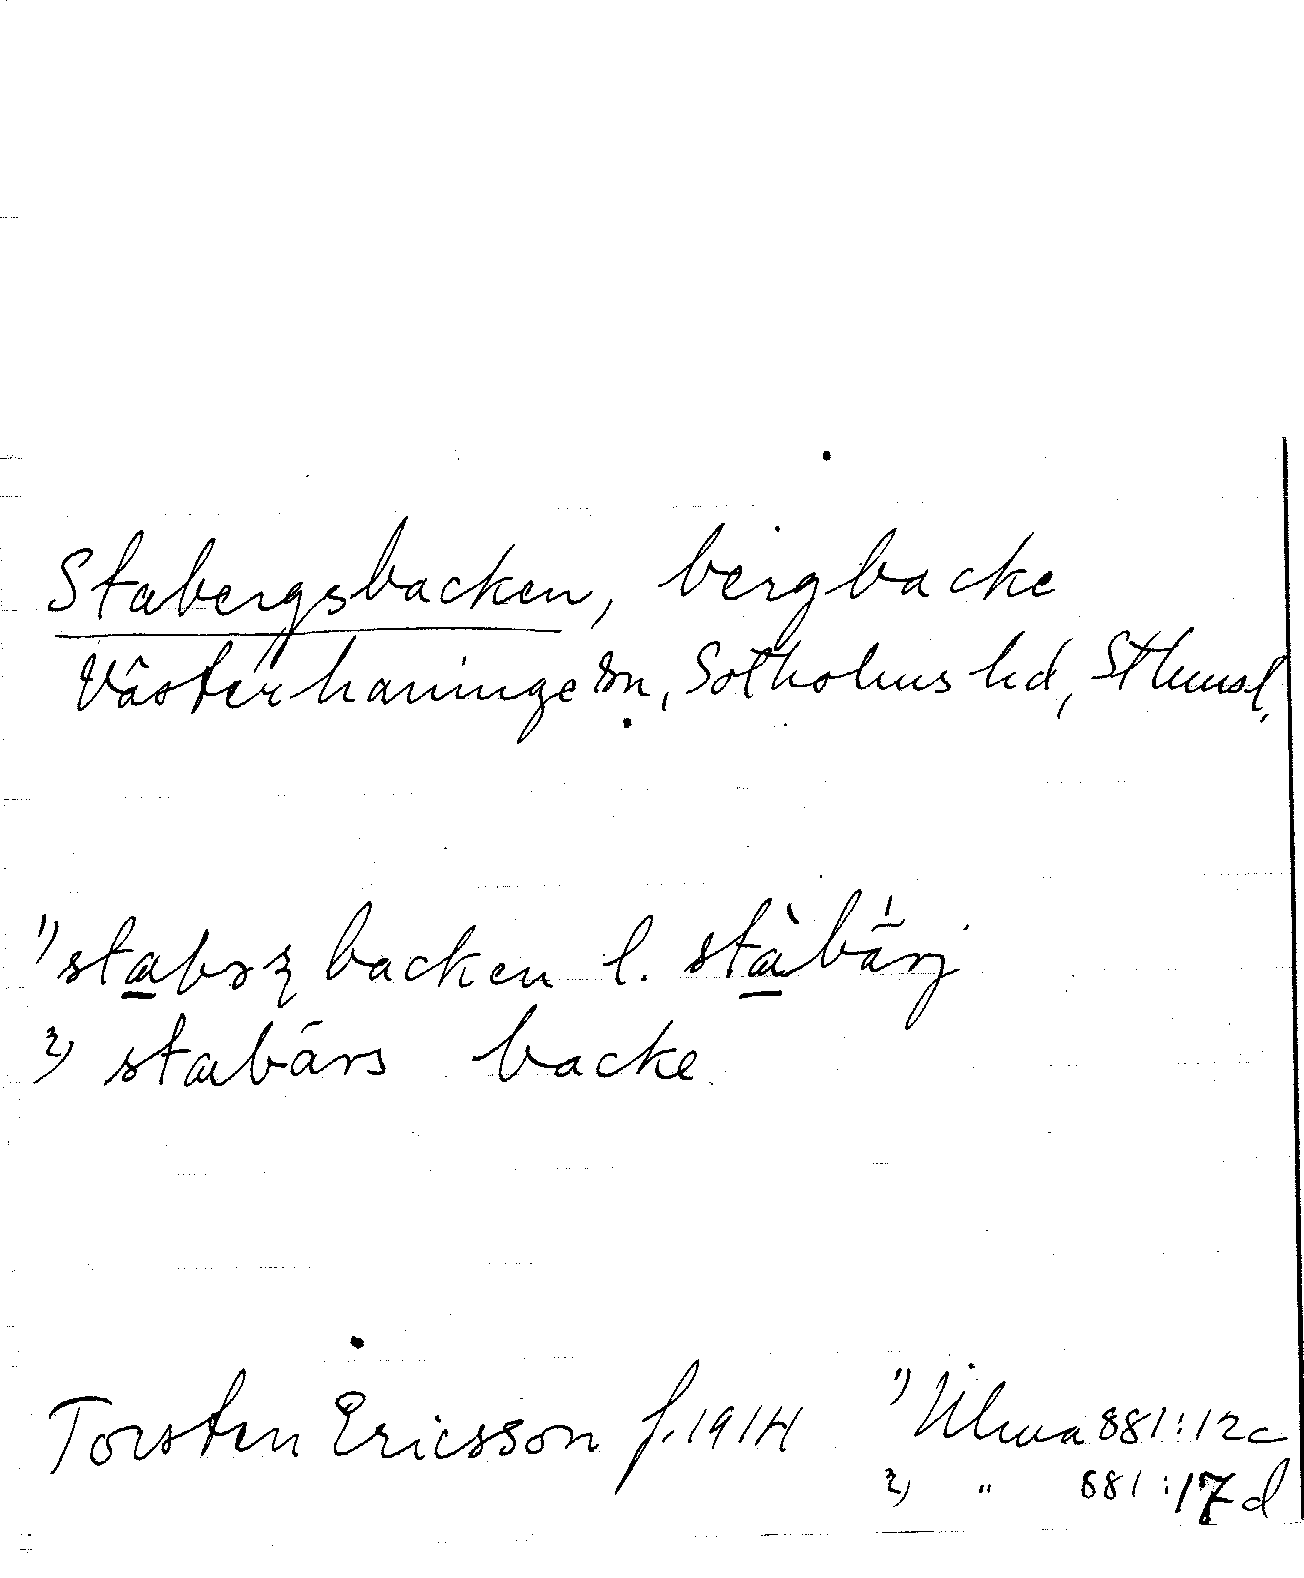 Stabergsbacken, bergbacke
Västerhaninge sn, Sotholms hd, Sthmsl.
1) stabrʒ backen l. stàbä́rj
2) stabärs backe
Torsten Ericsson f. 1914 1) Ulma 881:12c
2) " 881:17d